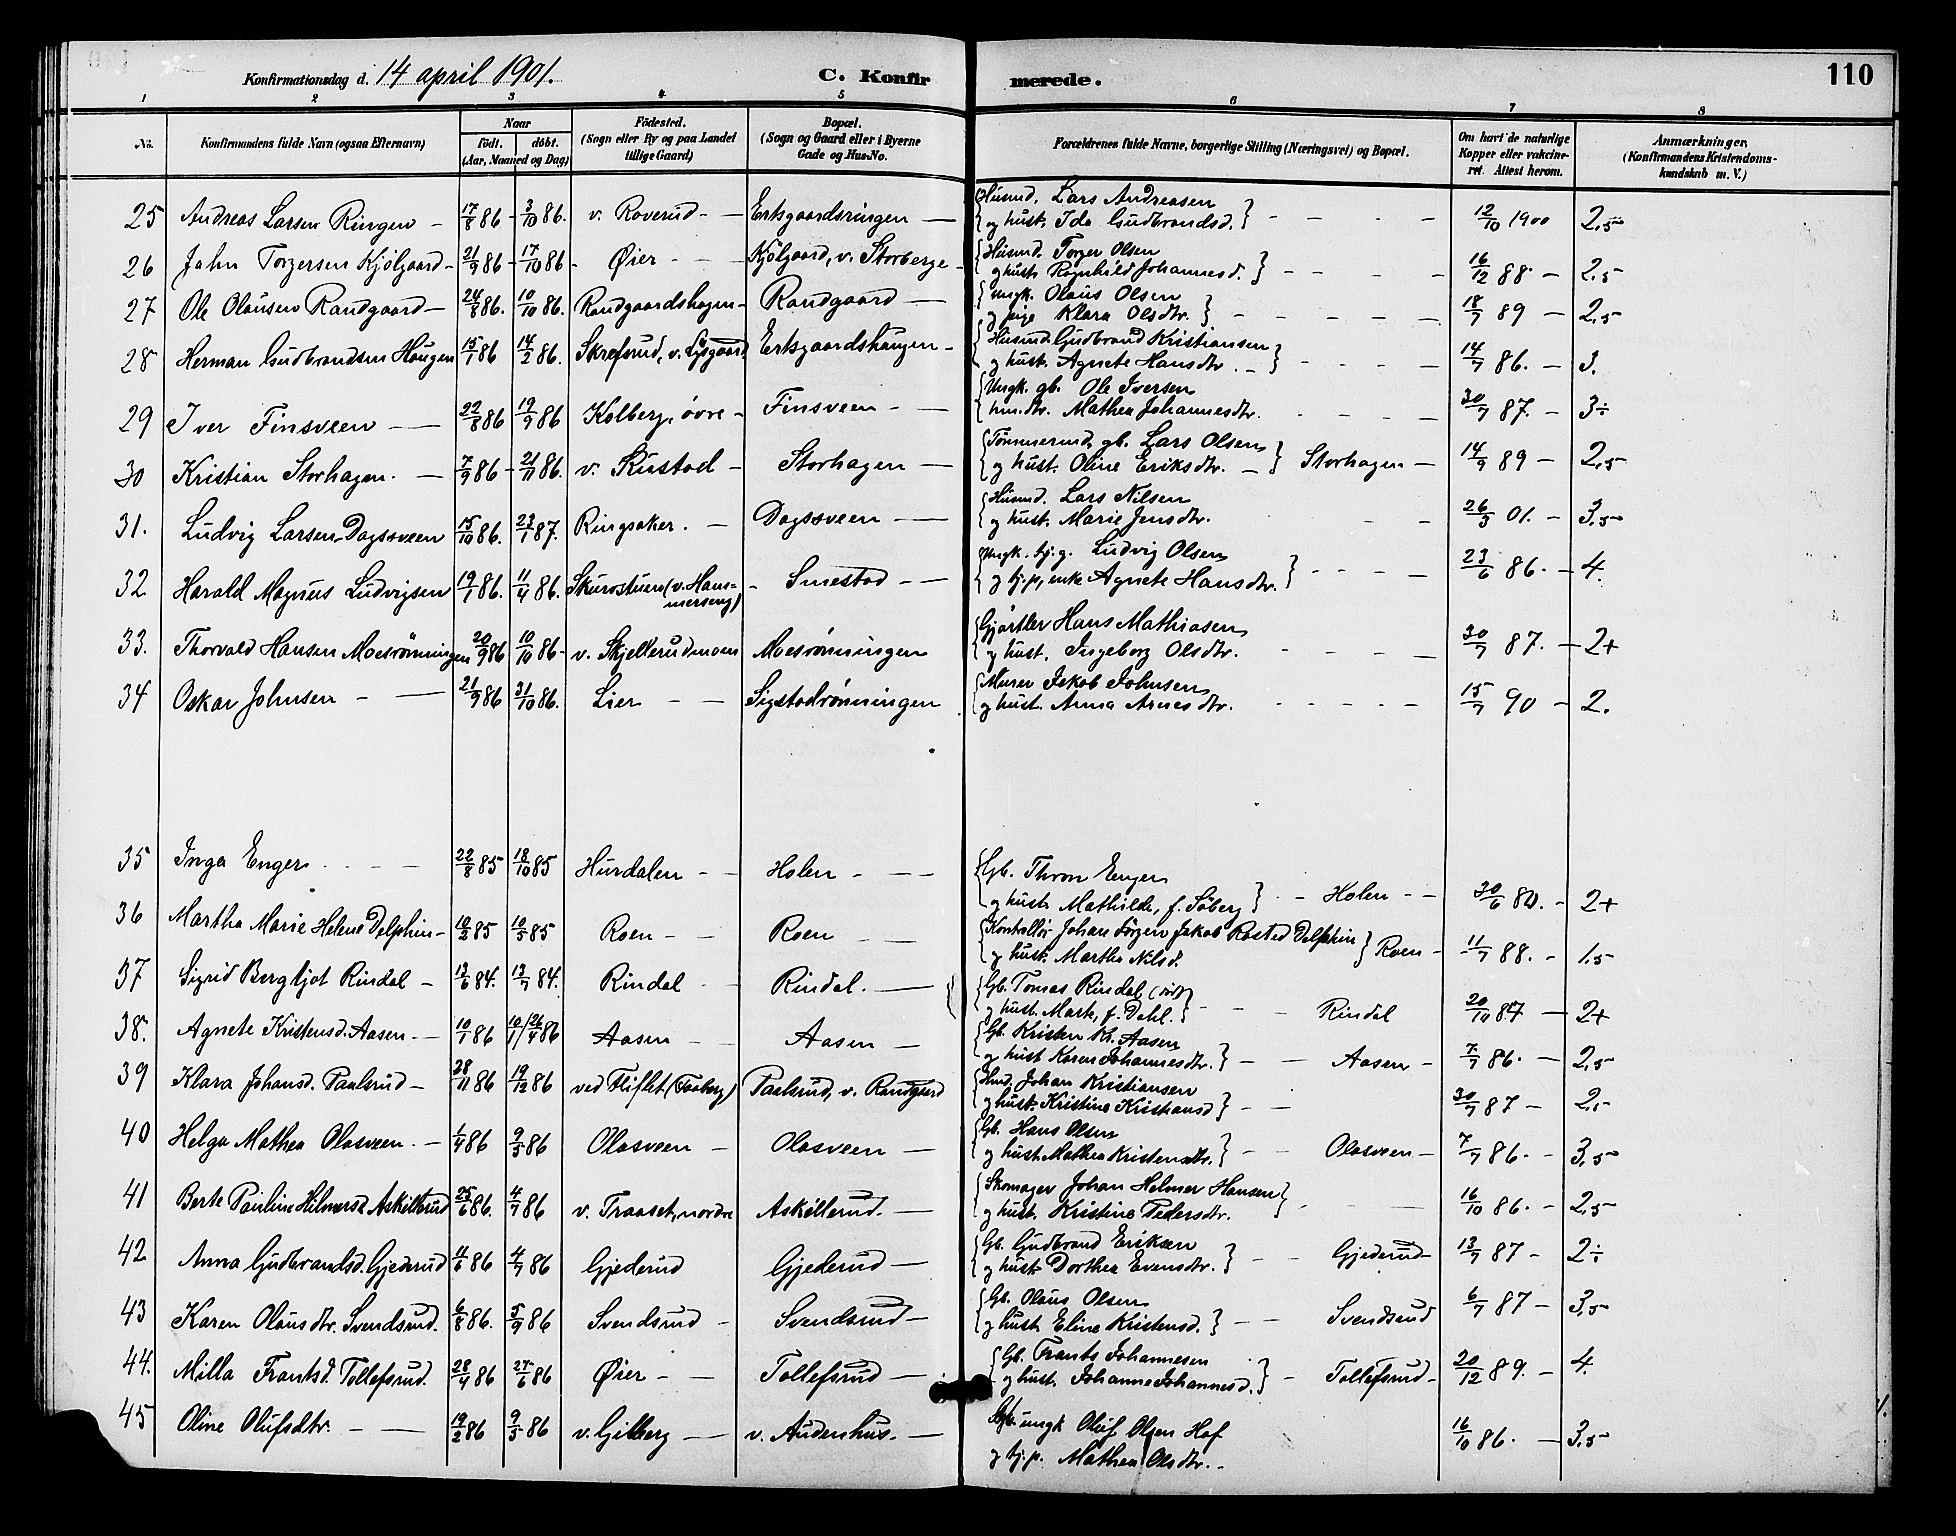 Konfirmationsdag d. 14 april 1901. C. Konfirmerede. 110
1 2 3 4 5 6 7 8
No. Konfirmandens fulde Navn (ogsaa Efternavn) Naar født. døbt. (Aar, Maaned og Dag) Födested. (Sogn eller By og paa Landet tillige Gaard) Bopæl. (Sogn og Gaard eller i Byerne Gade og Hus-No. Forældrenes fulde Navne, borgerlige Stilling (Næringsvei) og Bopæl. Om havt de naturlige Kopper eller vakcineret. Attest herom. Anmærkninger, (Konfirmandens Kristendomskundskab m. V.)
25 Andreas Larsen Ringen - 17/8 86 - 3/10 86. v. Roverud - Ertsgaardsringen - Husmd. Lars Andreasen
og hust. Ida Gudbrandsd. 12/10 1900 2,5
26 Johan Torgersen Kjölgaard - 21/9 86 - 17/10 86 - Øier - Kjölgaard, v. Storberge - Husmd. Torger Olsen
og hust. Ragnhild Johannesd. 16/12 88 - 2,5
27 Ole Olausen Randgaard - 24/8 86. 10/10 86. Randgaardshagen - Randgaard - Ungk. Olaus Olsen
og pige Klara Olsdtr. 18/7 89 - 2,5
28 Herman Gudbrandsen Haugen 15/1 86 14/2 86. Skrefsrud, v. Lysgaard Ertsgaardshaugen - Husmd. Gudbrand Kristiansen
og hust. Agnete Hansdtr. - 14/7 86. - 3.
29 Iver Finsveen - 22/8 86 19/9 86 Kolberg, övre - Finsveen - Ungk. gb. Ole Iversen
hmdtr. Mathea Johannesdtr. 30/7 87. - 3÷
30 Kristian Storhagen. - 7/9 86 - 21/11 86. v. Rustad - Storhagen - Tömmermd, gb. Lars Olsen
og hust. Oline Eriksdtr. - Storhagen - 14/9 89 - 2,5
31. Ludvig Larsen Dagssveen 15/10 86. 23/1 87. Ringsaker. - Dagssveen - Husmd. Lars Nilsen
og hust. Marie Jensdtr. 26/3 01. - 3,5
32 Harald Magnus Ludvigsen 19/1 86. 11/4 86. Skurostuen (v. Hammerseng) - Smestad - Ungk. tj.g. Ludvig Olsen
og tj.p, enke Agnete Hansdtr. 23/6 86. - 4.
33. Thorvald Hansen Moesrönningen 20/9 86 10/10 86 - v. Skjellerudmoen Moesrönningen Gjörtler Hans Mathiasen
og hust. Ingeborg Olsdtr. 30/7 87. - 2+
34 Oskar Johnsen - 21/9 86 31/10 86. Lier - Sigstadrönningen Murer Jakob Johnsen
og hust. Anna Arnesdtr. 15/7 90 - 2.
35 Inga Enger 22/8 85 18/10 85 Hurdalen - Holen - Gb. Thron Enger
og hust. Mathilde, f. Söberg - Holen - 30/6 80. - 2+
36 Martha Marie Helene Delphin - 19/2 85 10/5 85 Roen - Roen - Kontrollör Johan Jörgen Jakob Rosted Delphin
og hust. Martha Nilsd. Roen - 11/7 88. - 1.5
37 Sigrid Bergljot Rindal - 13/6 84. 13/7 84. Rindal - Rindal. - Gb. Tomas Rindal
og hust. Marte, f. Dahl. Rindal 20/10 87 - 2+
38. Agnete Kristensd. Aasen. - 10/1 86 10/1/26/4 86 Aasen - Aasen - Gb. Kristen Kr. Aasen
og hust Karen Johannesdtr. - Aasen - 7/7 86. - 2,5
39 Klara Johansd. Paulsrud - 28/11 86 19/12 86 ved Fliflet (Faaberg) Paulsrud, v. Randgaard Hmd. Johan Kristiansen
og hust. Kristine Kristiansd - 30/7 87 - 2,5
40 Helga Mathea Olasveen. - 1/4 86 9/5 86 Olasveen - Olasveen - Gb. Hans Olsen
og hust Mathea Kristensdtr. - Olasveen - 7/7 86. - 3,5
41 Berte Pauline Hilmersd. Askillerud 25/6 86. 4/7 86 v. Traaset, nordre Askillerud. - Skomager Johan Helmer Hansen
og hust. Kristine Pedersdtr. 16/10 86. - 2,5
42 Anna Gudbrandsd. Gjederud 11/6 86 4/7 86 Gjederud Gjederud - Gb. Gudbrand Eriksen
og hust Dorthea Evensdtr. - Gjederud - 13/7 87 - 2÷
43 Karen Olausdtr. Svendsrud. 6/8 86. 5/9 86 Svendsrud - Svendsrud - Gb. Olaus Olsen
og hust Eline Kristensd. - Svendsrud 6/7 87 - 3,5
44. Milla Frantsd. Tollefsrud. 28/4 86 27/6 86 Øier - Tollefsrud - Gb. Frants Johannesen
og hust. Johanne Johannesd. - Tollefsrud - 20/12 89. - 4.
45 Oline Olufsdtr. - 19/2 86 9/5 86 v. Gilberg - v. Audenhus. - ungk Oluf Olsen Hof
og tj.p. Mathea Olsdtr. - 16/10 86. - 3,5